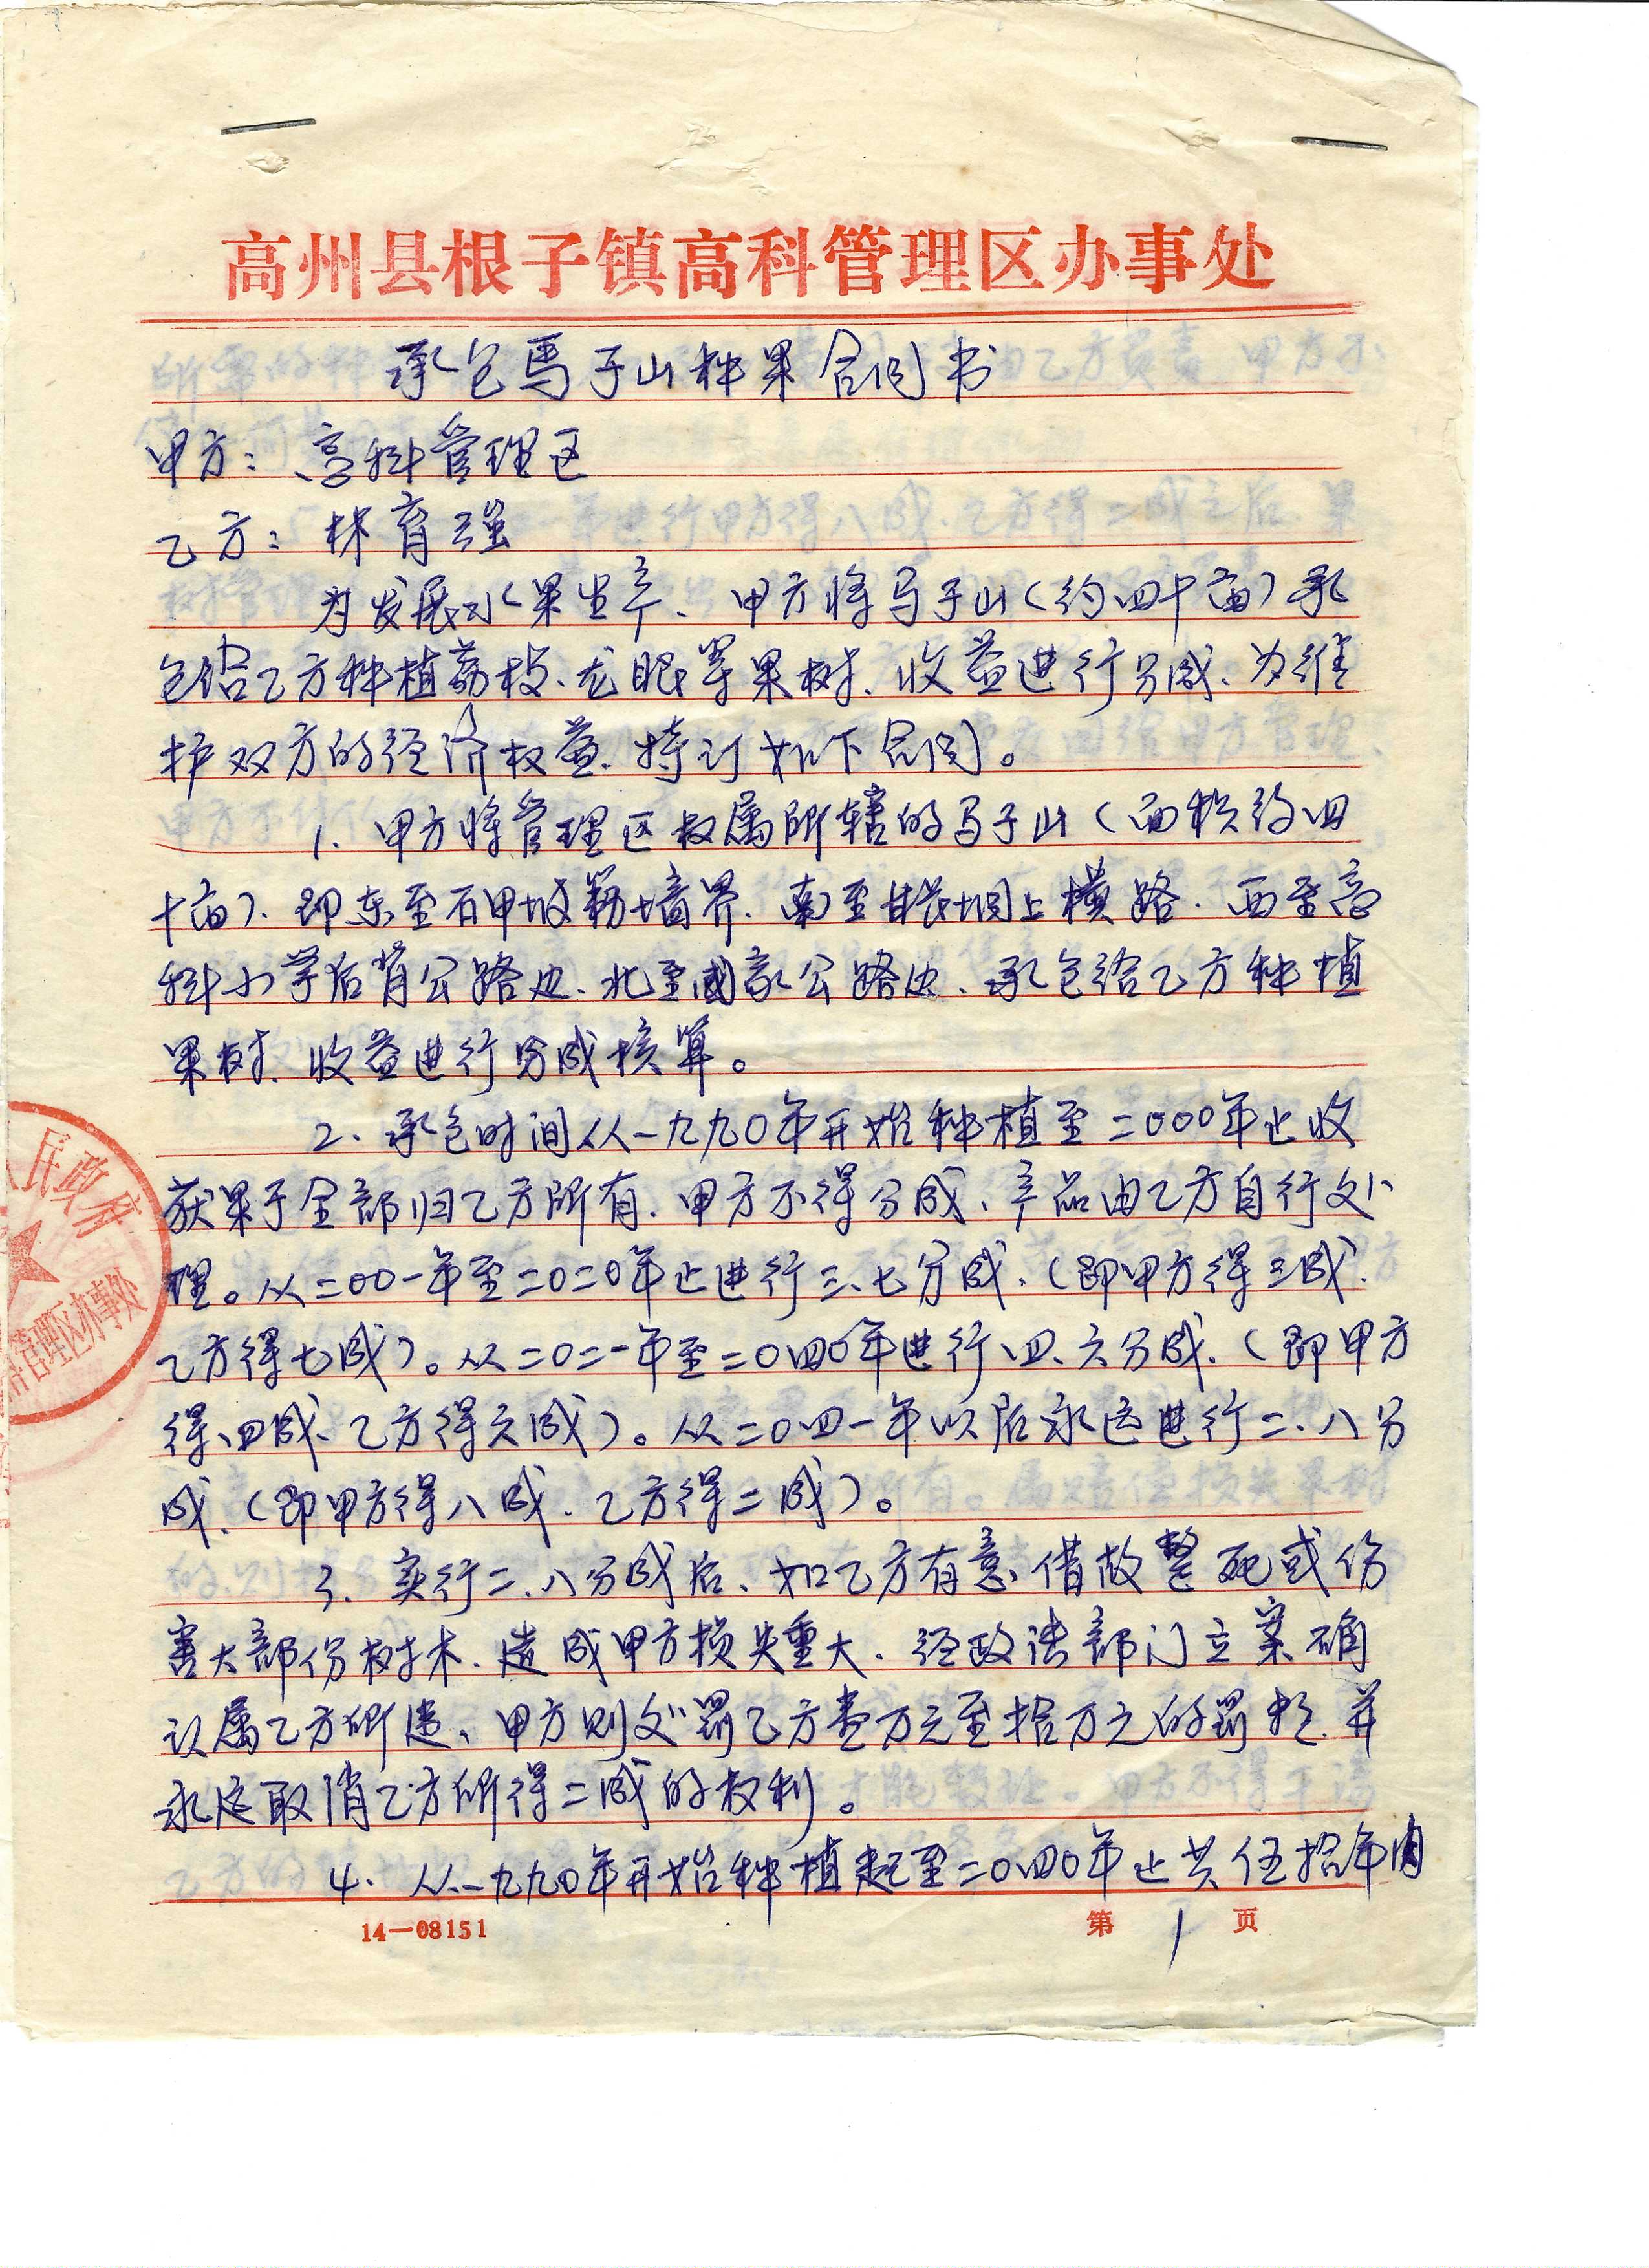 高州县根子镇高科管理区办事处
承包马子山种果合同书
甲方：高科管理区
乙方：林育强
为发展水果生产、甲方将马子山（约四十亩）承
包给乙方种植荔枝、龙眼等果树、收益进行分成、为维
护双方的经济权益、特订如下合同。
1. 甲方将管理区权属所辖的马子山（面积约四
十亩）、即东至石甲坡 墙界、南至 上横路、西至高
科小学后背公路边、北至国家公路边、承包给乙方种植
果树、收益进行分成核算。
2. 承包时间从一九九0年开始种植至二000年止收
获果子全部归乙方所有、甲方不得分成、产品由乙方自行处
理。从二00一年至二0二0年止进行三、七分成、（即甲方得三成、
乙方得七成）。从二0二一年至二0四0年进行四、六分成、（即甲方
得四成、乙方得六成）。从二0四一年以后永远进行二、八分
成、（即甲方得八成、乙方得二成）。
3. 实行二、八分成后、如乙方有意借故整死或伤
害大部份树木、造成甲方损失重大、经政法部门立案确
认属乙方所造、甲方则处罚乙方壹万元至拾万元的罚款、并
永远取消乙方所得二成的权利。
4. 从一九九0年开始种植起至二0四0年止共伍拾年内
14—08151
第 1 页
人民政府
管理区办事处